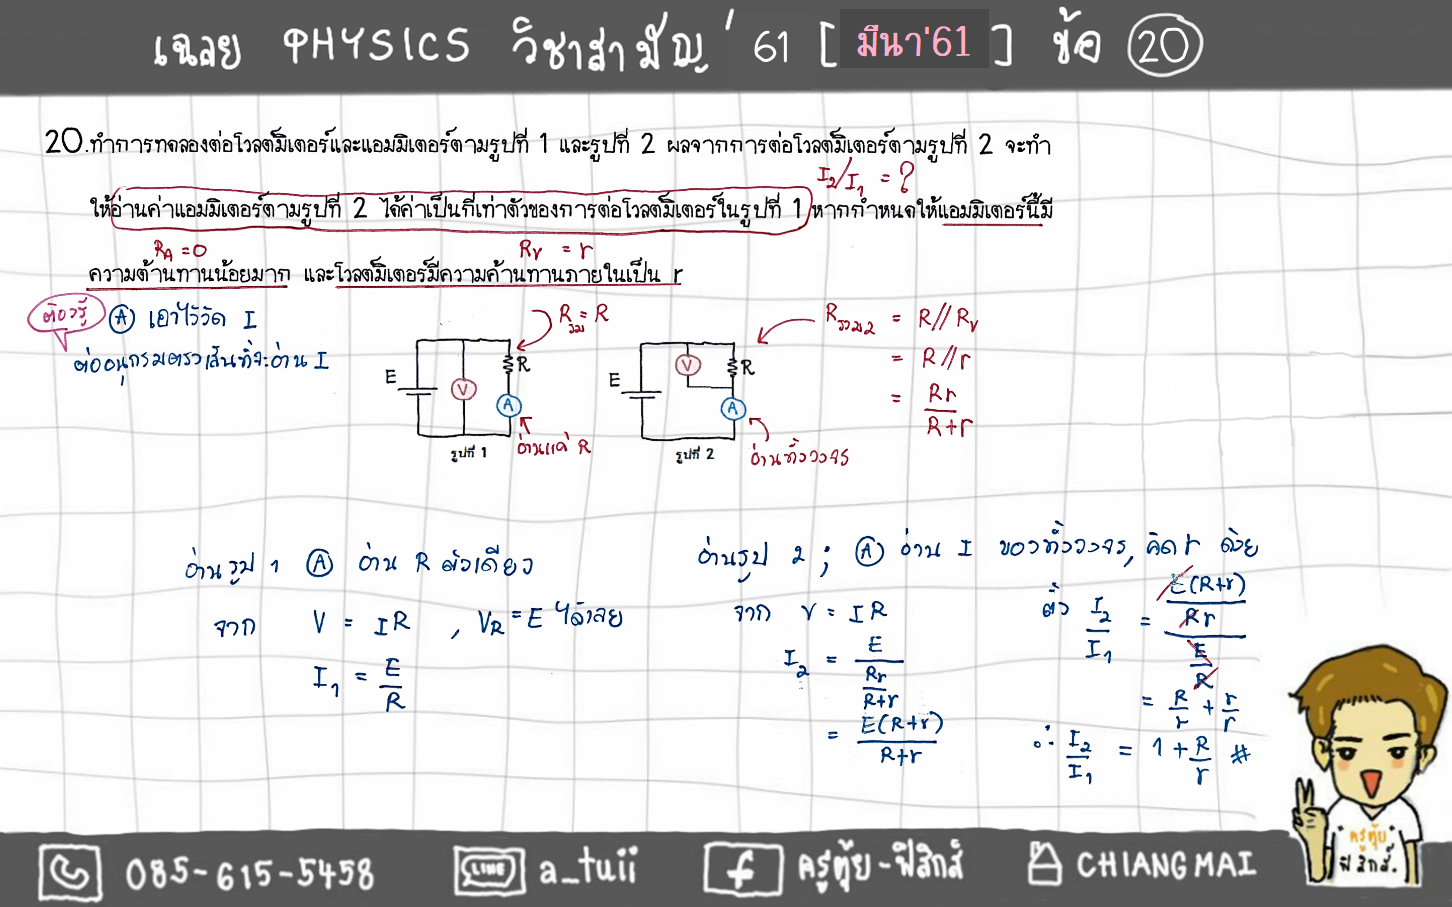 เฉลย PHYSICS วิชาสามัญ' 61 [ มีนา'61 ] ข้อ 20
20.ทำการทดลองต่อโวลต์มิเตอร์และแอมมิเตอร์ตามรูปที่ 1 และรูปที่ 2 ผลจากการต่อโวลต์มิเตอร์ตามรูปที่ 2 จะทำ
I2/I1 = ?
ให้อ่านค่าแอมมิเตอร์ตามรูปที่ 2 ได้ค่าเป็นกี่เท่าตัวของการต่อโวลต์มิเตอร์ในรูปที่ 1 หากกำหนดให้แอมมิเตอร์นี้มี
RA = 0
RV = r
ความต้านทานน้อยมาก และโวลต์มิเตอร์มีความต้านทานภายในเป็น r
ต้องรู้ A เอาไว้วัด I
ต่ออนุกรมตรงเส้นที่จะอ่าน I
Rรวม = R
E V R A
อ่านแค่ R
รูปที่ 1
E V R A
อ่านทั้งวงจร
รูปที่ 2
Rรวม2 = R//RV
= R//r
= Rr/R+r
อ่านรูป 1 A อ่าน R ตัวเดียว
จาก V = IR , VR = E ได้เลย
I1 = E/R
อ่านรูป 2 ; A อ่าน I ของทั้งวงจร, คิด r ด้วย
จาก V = IR
I2 = E/(Rr/R+r)
= E(R+r)/R+r
ตั้ง I2/I1 = (E(R+r)/Rr)/(E/R)
= R/r + r/r
∴ I2/I1 = 1 + R/r #
ครูตุ้ย
ฟิสิกส์.
085-615-5458
LINE a_tuii
f ครูตุ้ย-ฟิสิกส์
CHIANGMAI